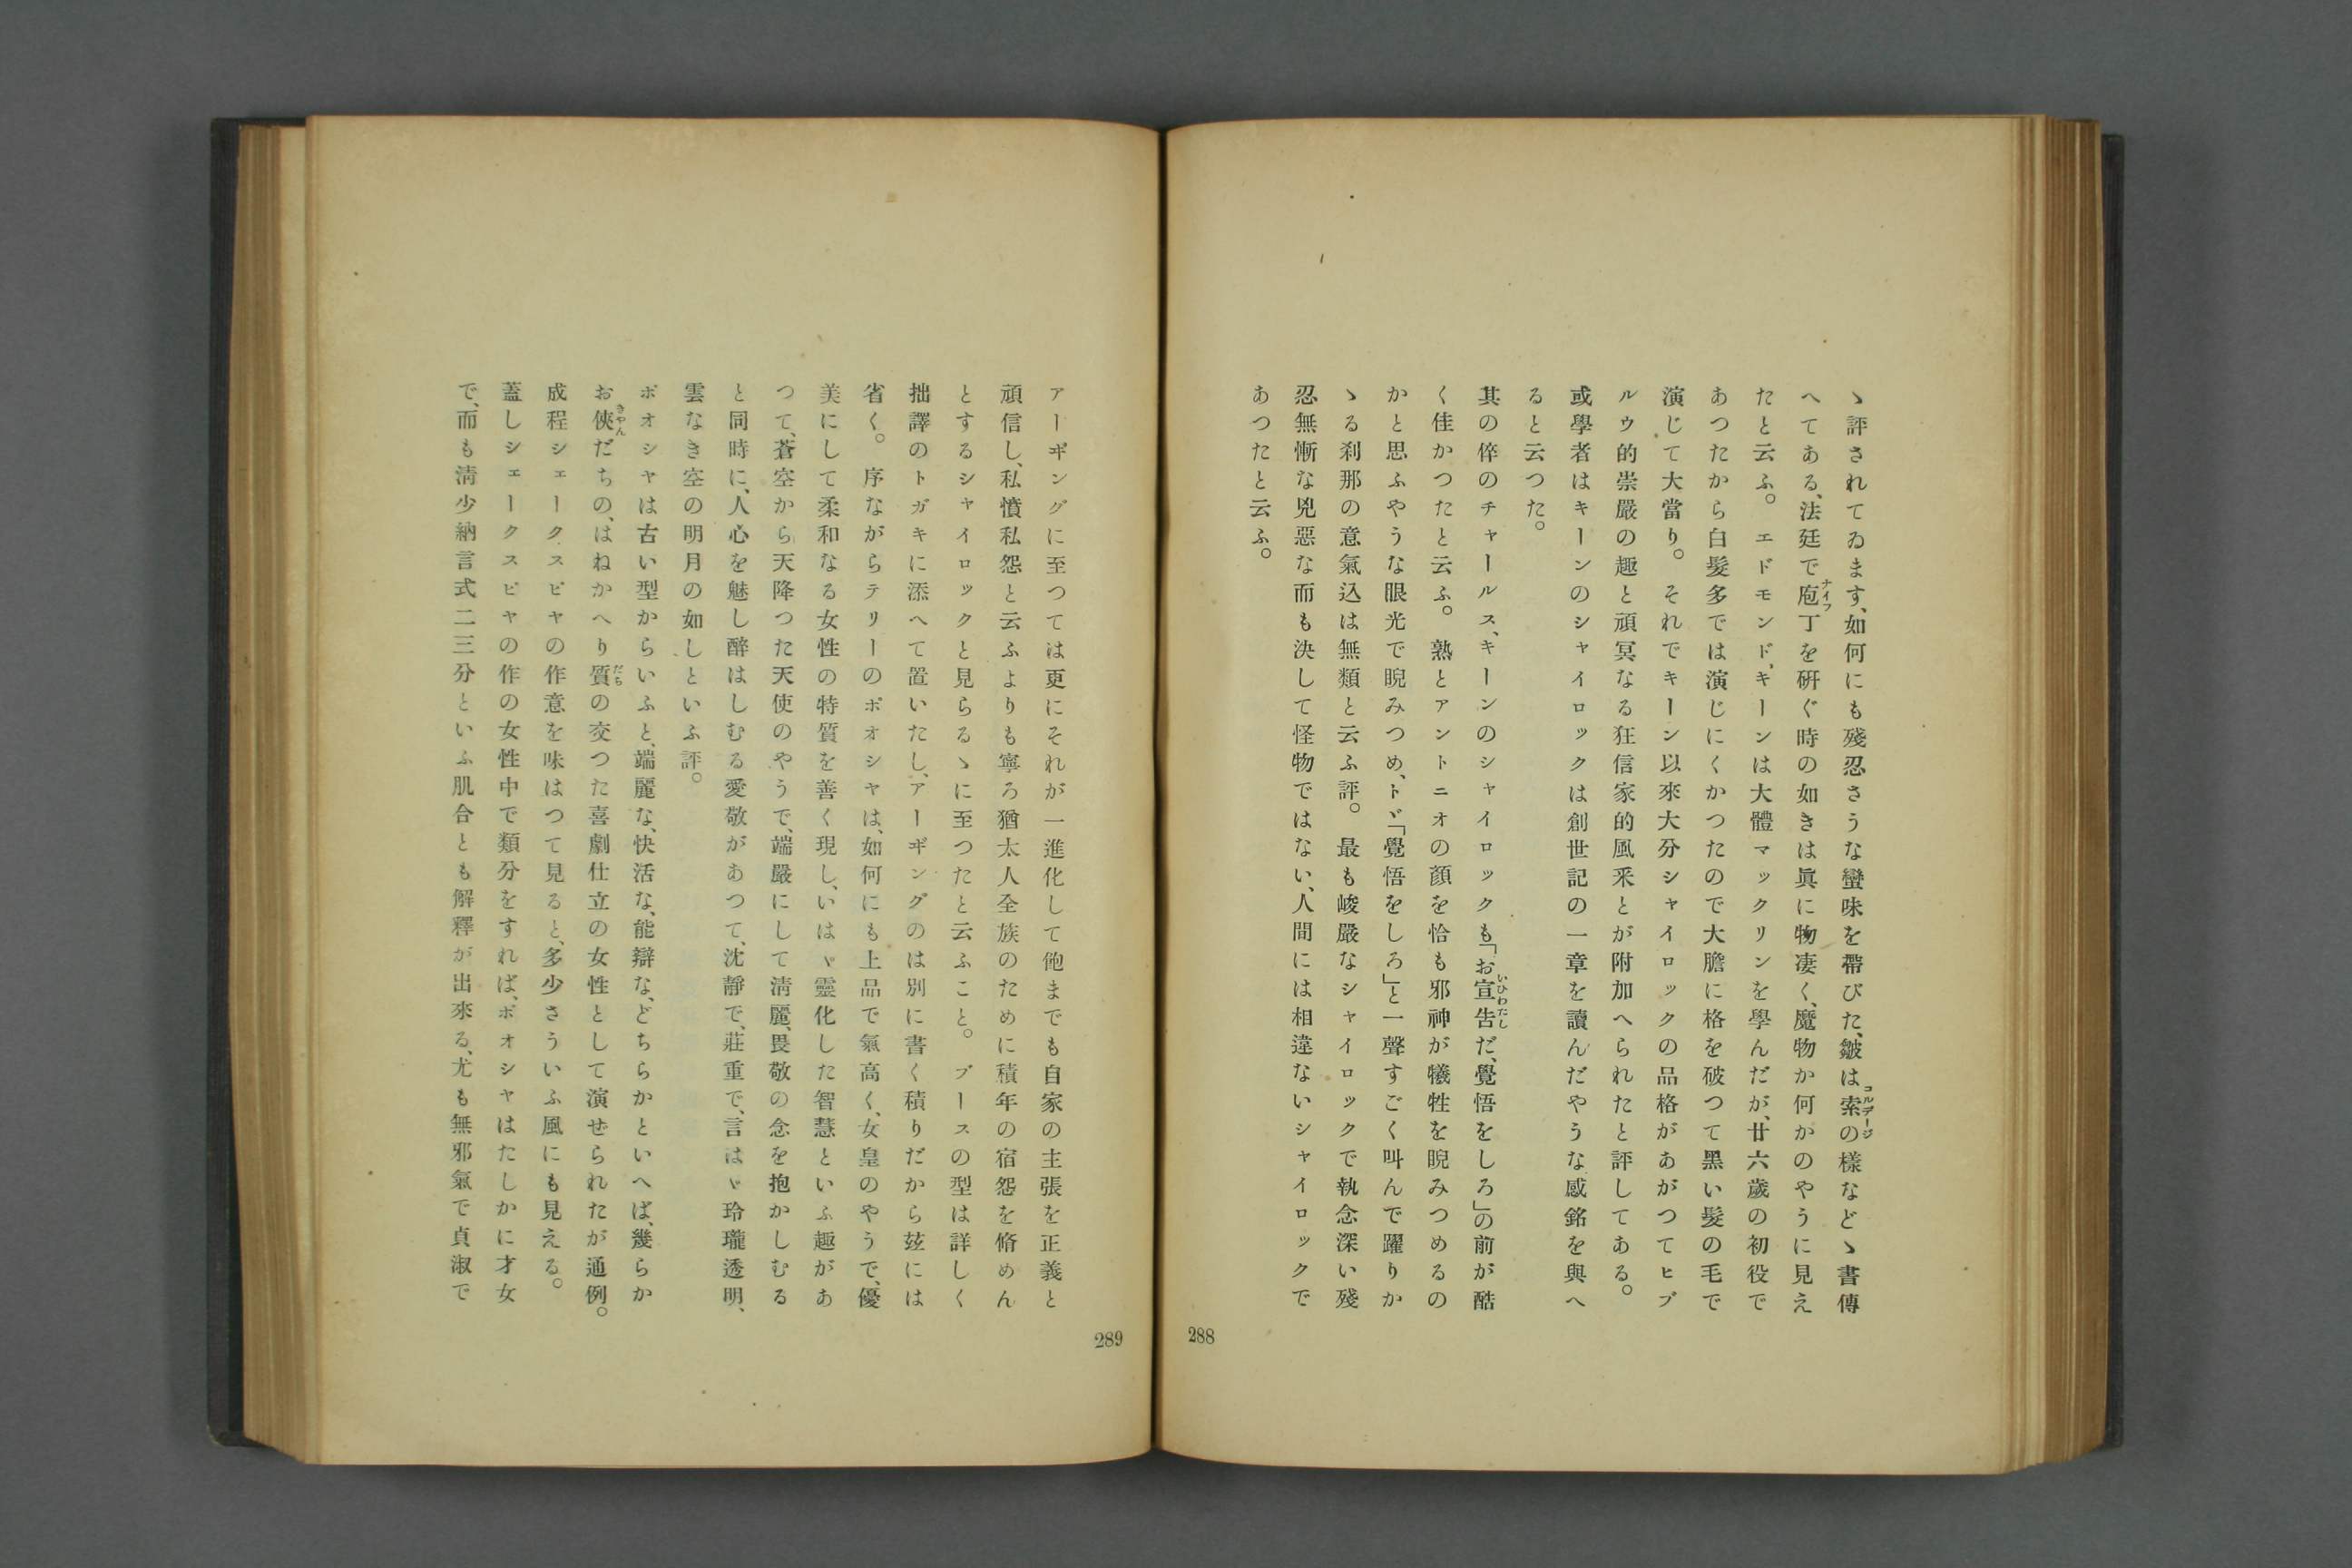 ゝ評されてゐます、如何にも殘忍さうな蠻味を帶びた、皺は索の樣などゝ書傳
へてある、法廷で庖丁を硏ぐ時の如きは眞に物凄く、魔物か何かのやうに見え
たと云ふ。エドモンド、キーンは大體マックリンを學んだが、廿六歲の初役で
あつたから白髮多では演じにくかつたので大膽に格を破つて黑い髮の毛で
演じて大當り。それでキーン以來大分シャイロックの品格があがつてヒブ
ルウ的崇嚴の趣と頑冥なる狂信家的風釆とが附加へられたと評してある。
或學者はキーンのシャイロックは創世記の一章を讀んだやうな感銘を與へ
ると云つた。
其の倅のチャールス、キーンのシャイロックも「お宣吿だ、覺悟をしろ」の前が酷
く佳かつたと云ふ。熟とアントニオの顏を恰も邪神が犧牲を睨みつめるの
かと思ふやうな眼光で睨みつめ、トヾ「覺悟をしろ」と一聲すごく叫んで躍りか
ゝる刹那の意氣込は無類と云ふ評。最も峻嚴なシャイロックで執念深い殘
忍無慚な兇惡な而も決して怪物ではない、人間には相違ないシャイロックで
あつたと云ふ。
288
アーギングに至つては更にそれが一進化して飽までも自家の主張を正義と
頑信し、私憤私怨と云ふよりも寧ろ猶太人全族のために積年の宿怨を脩めん
とするシャイロックと見らるゝに至つたと云ふこと。ブースの型は詳しく
拙譯のトガキに添へて置いたし、アーギングのは別に書く積りだから玆には
省く。序ながらテリーのポオシャは、如何にも上品で氣高く、女皇のやうで、優
美にして柔和なる女性の特質を善く現し、いはゞ靈化した智慧といふ趣があ
つて、蒼空から天降つた天使のやうで、端嚴にして淸麗、畏敬の念を抱かしむる
と同時に、人心を魅し醉はしむる愛敬があつて、沈靜で、莊重で、言はゞ玲瓏透明、
雲なき空の明月の如しといふ評。
ポオシャは古い型からいふと、端麗な、快活な、能辯な、どちらかといへば、幾らか
お俠だちの、はねかへり質の交つた喜劇仕立の女性として演せられたが通例。
成程シェークスピヤの作意を味はつて見ると、多少さういふ風にも見える。
蓋しシェークスピヤの作の女性中で類分をすれば、ポオシャはたしかに才女
で、而も淸少納言式二三分といふ肌合とも解釋が出來る、尤も無邪氣で貞淑で
289